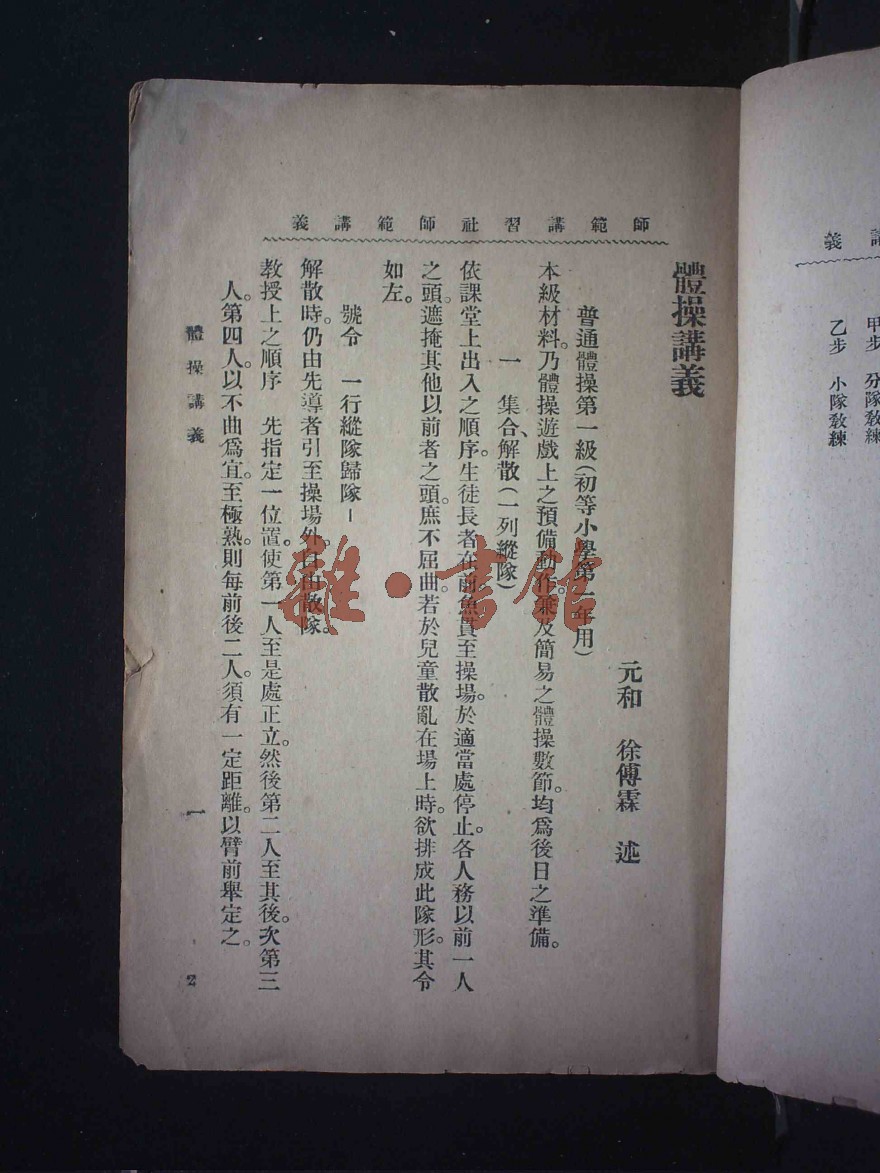 師範講習社師範講義
體操講義
元和　徐傅霖　述
普通體操第一級(初等小學第一年用)
本級材料。乃體操遊戲上之預備動作。兼及簡易之體操數節。均爲後日之準備。
一　集合、解散(一列縱隊)
依課堂上出入之順序。生徒長者在前。魚貫至操場。於適當處停止。各人務以前一人
之頭。遮掩其他以前者之頭。庶不屈曲。若於兒童散亂在場上時。欲排成此隊形。其令
如左。
號令　一行縱隊歸隊–
解散時。仍由先導者引至操場外。自由散隊。
教授上之順序　先指定一位置。使第一人至是處正立。然後第二人至其後。次第三
人。第四人。以不曲爲宜。至極熟。則每前後二人。須有一定距離。以臂前舉定之。
體操講義
一
2
講義
甲步　分隊教練
乙步　小隊教練
雜·書館